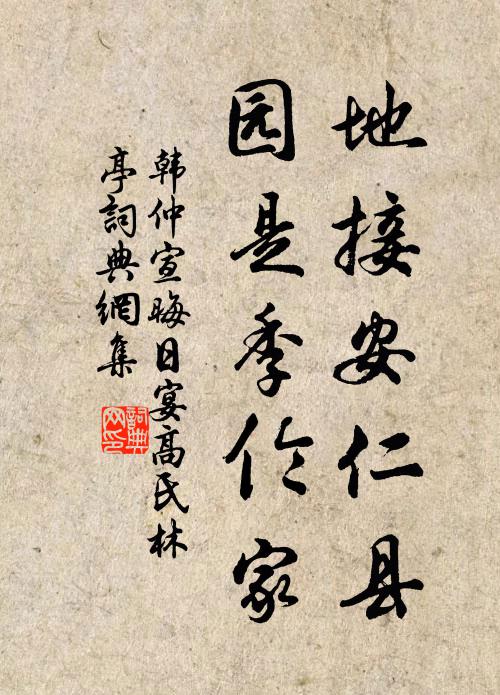 地接安仁县
园是季伦家
韩仲宣晦日宴高氏林
亭詞典網集
詞典
网印